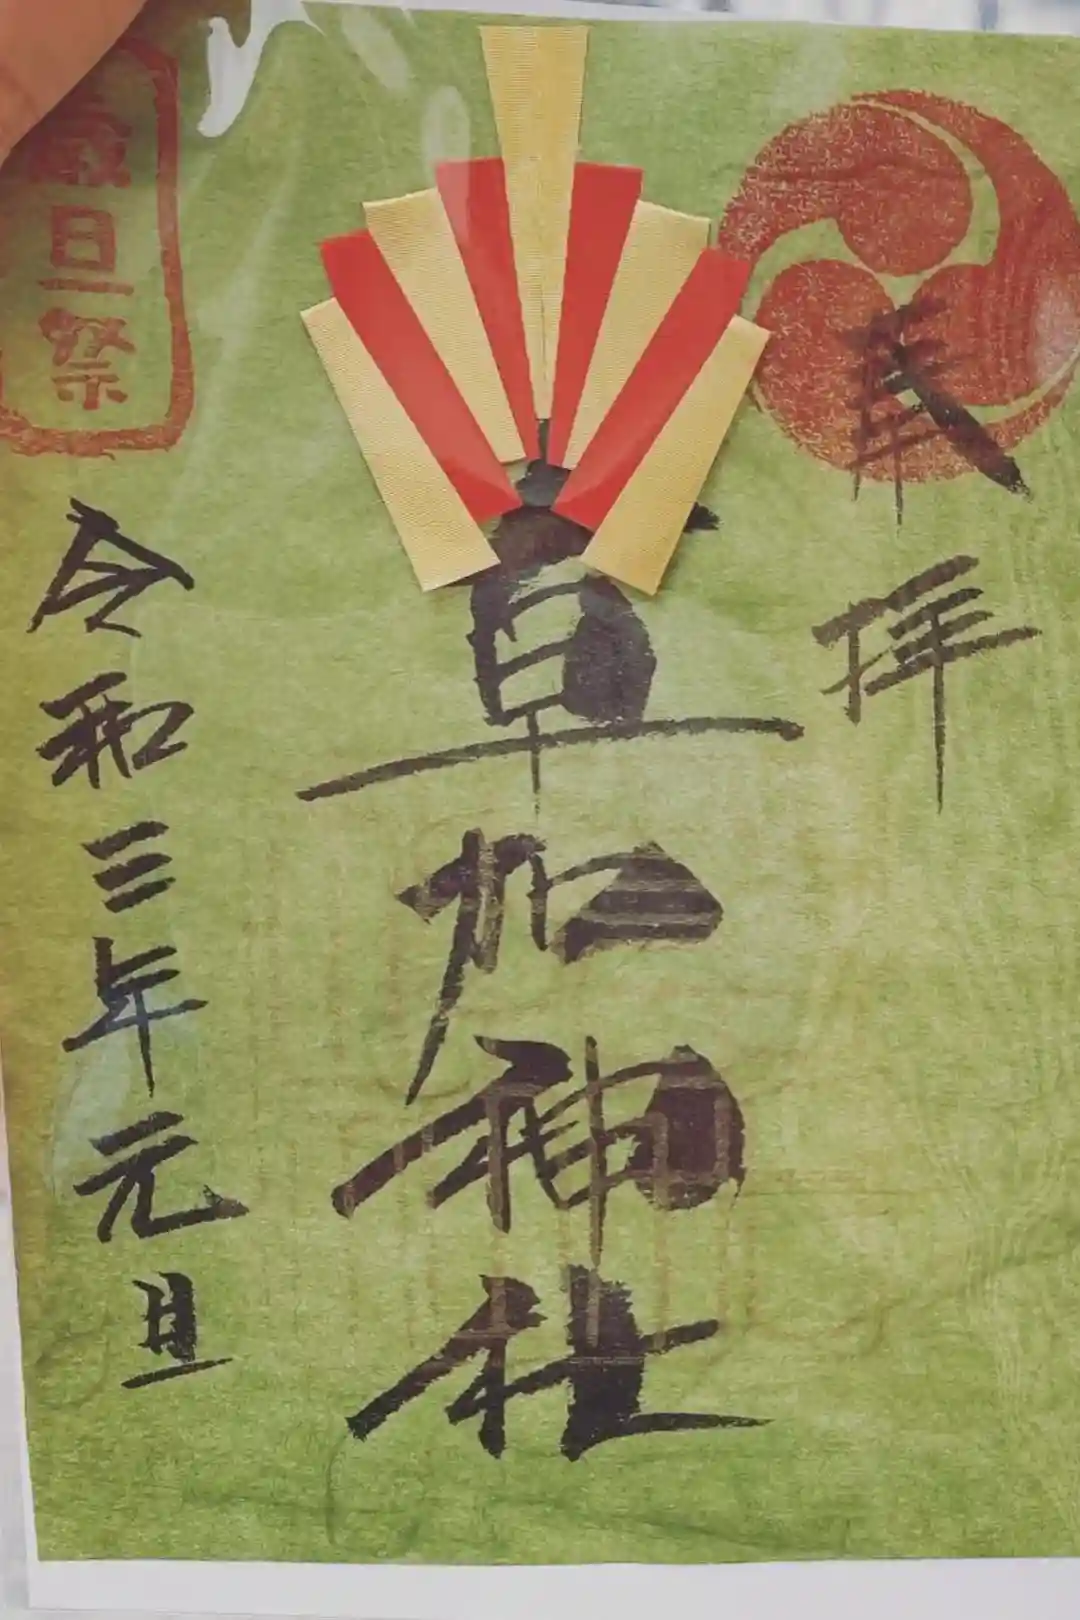 奉拝
草加神社
令和三年元旦
歳旦祭